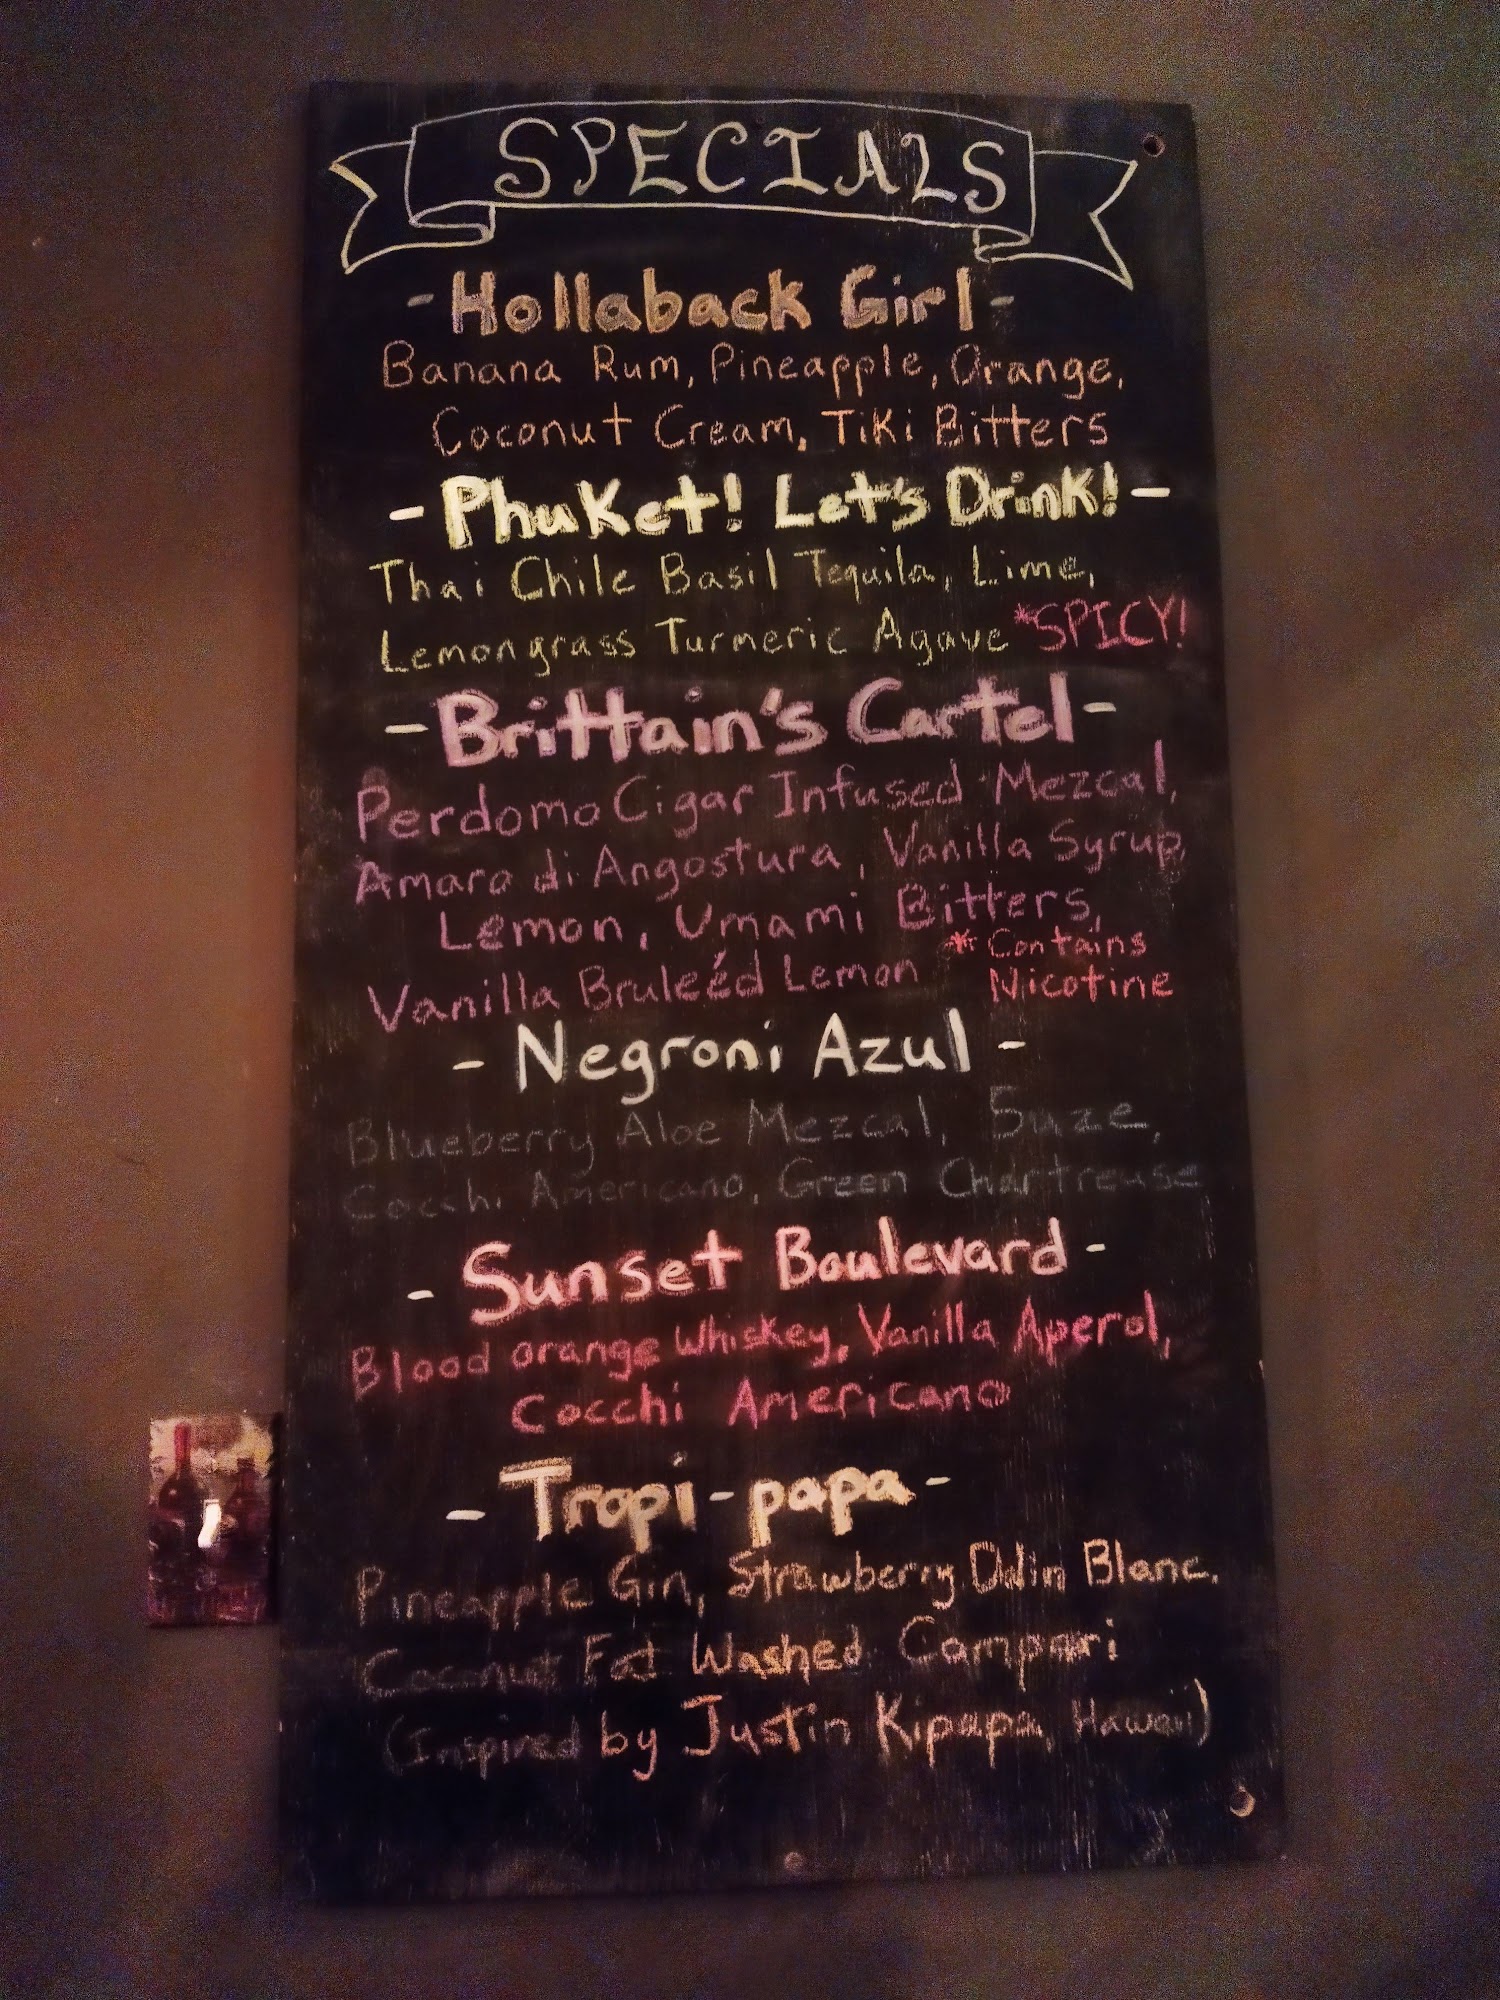 SPECIALS
- Hollaback Girl -
Banana Rum, Pineapple, Orange,
Coconut Cream, Tiki Bitters
- Phuket! Let's Drink! -
Thai Chile Basil Tequila, Lime,
Lemongrass Turmeric Agave *SPICY!
- Brittain's Cartel -
Perdomo Cigar Infused Mezcal,
Amaro di Angostura, Vanilla Syrup,
Lemon, Umami Bitters,
Vanilla Bruleéd Lemon *Contains
Nicotine
- Negroni Azul -
Blueberry Aloe Mezcal, Suze,
Cocchi Americano, Green Chartreuse
- Sunset Boulevard -
Blood orange Whiskey, Vanilla Aperol,
Cocchi Americano
- Tropi-papa -
Pineapple Gin, Strawberry Dolin Blanc,
Coconut Fat Washed Campari
(Inspired by Justin Kipapa, Hawaii)